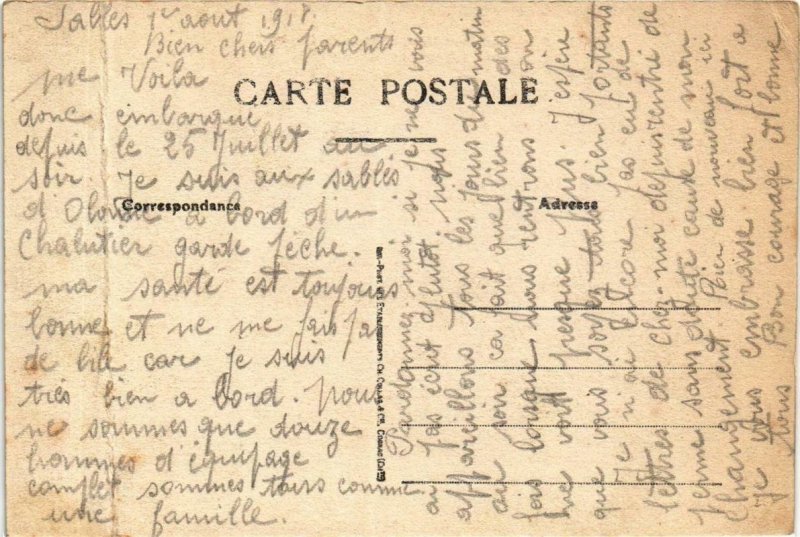 Sables 1er aout 1917
Bien chers parents
CARTE POSTALE
Correspondance
Adresse
me Voila
donc embarque
depuis le 25 Juillet au
soir. Je suis aux sables
d Olonne a bord d'un
Chalutier garde pêche.
ma santé est toujours
bonne et ne me fais pas
de bile car je suis
très bien a bord. nous
ne sommes que douze
hommes d équipage
complet sommes tous comme
une famille.
Pardonnez-moi si je ne vous
ai pas écrit plutot mais nous
appareillons tous les jours du matin
au soir ca fait que bien des
fois lorsque nous rentrons on
ne voit presque plus. J'espère
que vous soyez tous bien portants
Je n'ai encore pas eu de
lettres de chez-moi depuis rentré de
perme sans doute cause de mon
changement. Rien de nouveau ici
Je vous embrasse bien fort a
tous Bon courage et bonne